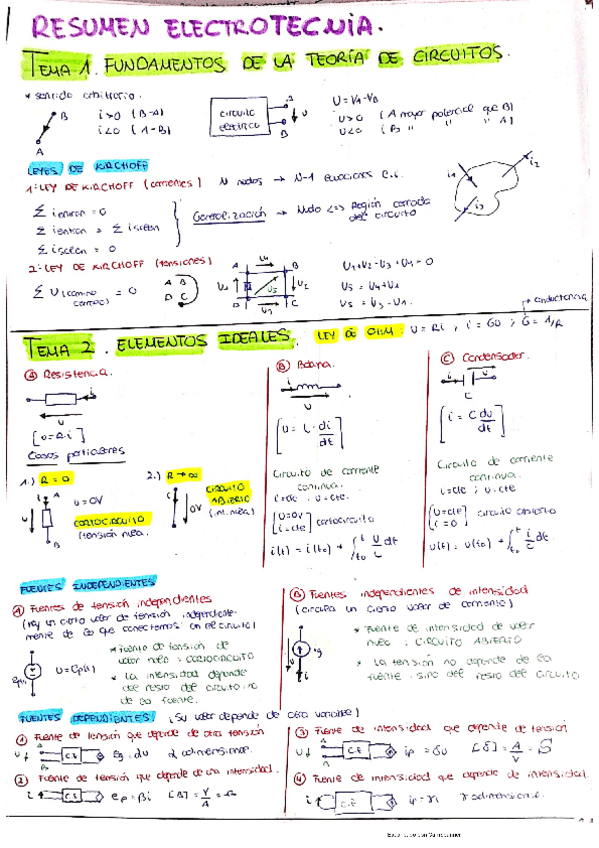 RESUMEN ELECTROTECNIA.
TEMA 1. FUNDAMENTOS DE LA TEORÍA DE CIRCUITOS.
* sentido arbitrario.
B
A
i>0 (B-A)
i<0 (A-B)
CIRCUITO
ELÉCTRICO
B
B
U = VA-VB
U>0 (A mayor potencial que B)
U<0 (B " " " A)
LEYES DE KIRCHOFF
1ª LEY DE KIRCHOFF (corrientes) N nodos → N-1 ecuaciones
Σ ientran = 0
Σ ientran = Σ isalen
Σ isalen = 0
Generalización → Nudo <=> Región cerrada
del circuito
i1
i2
i3
2ª LEY DE KIRCHOFF (tensiones)
Σ U(camino
cerrado) = 0
A B
D C
A
B
D
C
U2
U5
U3
U1+U2-U3+U4=0
U5 = U4+U1
U5 = U3-U2.
TEMA 2. ELEMENTOS IDEALES. LEY DE OHM: U = Ri ; i = GU ; G = 1/R
→ conductancia
Ⓐ Resistencia.
i
U
[U=R·i]
Casos particulares
1.) R=0
A
i
U
B
U=0V
CORTOCIRCUITO
(tensión nula)
2.) R→∞
i
0V
CIRCUITO
ABIERTO
(i. nula)
Ⓑ Bobina.
i
U
[U = L·di/dt]
Circuito de corriente
continua.
i=cte ; U=cte.
[U=0V
i=cte] cortocircuito
i(t) = i(t0) + ∫ U/L dt
Ⓒ Condensador.
i
U
C
[i = C dU/dt]
Circuito de corriente
continua.
i=cte ; U=cte
[U=cte
i=0] circuito abierto
U(t) = U(t0) + ∫ i/C dt
FUENTES INDEPENDIENTES
Ⓐ Fuentes de tensión independientes
(hay un cierto valor de tensión independiente-
mente de lo que conectemos en el circuito)
U=Eg(t)
* Fuente de tensión de
valor nulo : CORTOCIRCUITO
* La intensidad depende
del resto del circuito, no
de la fuente.
Ⓑ Fuentes independientes de intensidad
(circula un cierto valor de corriente)
U
ig
* Fuente de intensidad de valor
nulo : CIRCUITO ABIERTO
* La tensión no depende de la
fuente, sino del resto del circuito
FUENTES DEPENDIENTES. (Su valor depende de otra variable)
① Fuente de tensión que depende de otra tensión
U
C.E
eg = αU α adimensional.
② Fuente de tensión que depende de una intensidad.
i
C.E
eg = βi [β] = V/A = Ω
③ Fuente de intensidad que depende de tensión
U
C.E
ip = δU [δ] = A/V = S
④ Fuente de intensidad que depende de intensidad.
i
C.E
ip = γi γ adimensional.